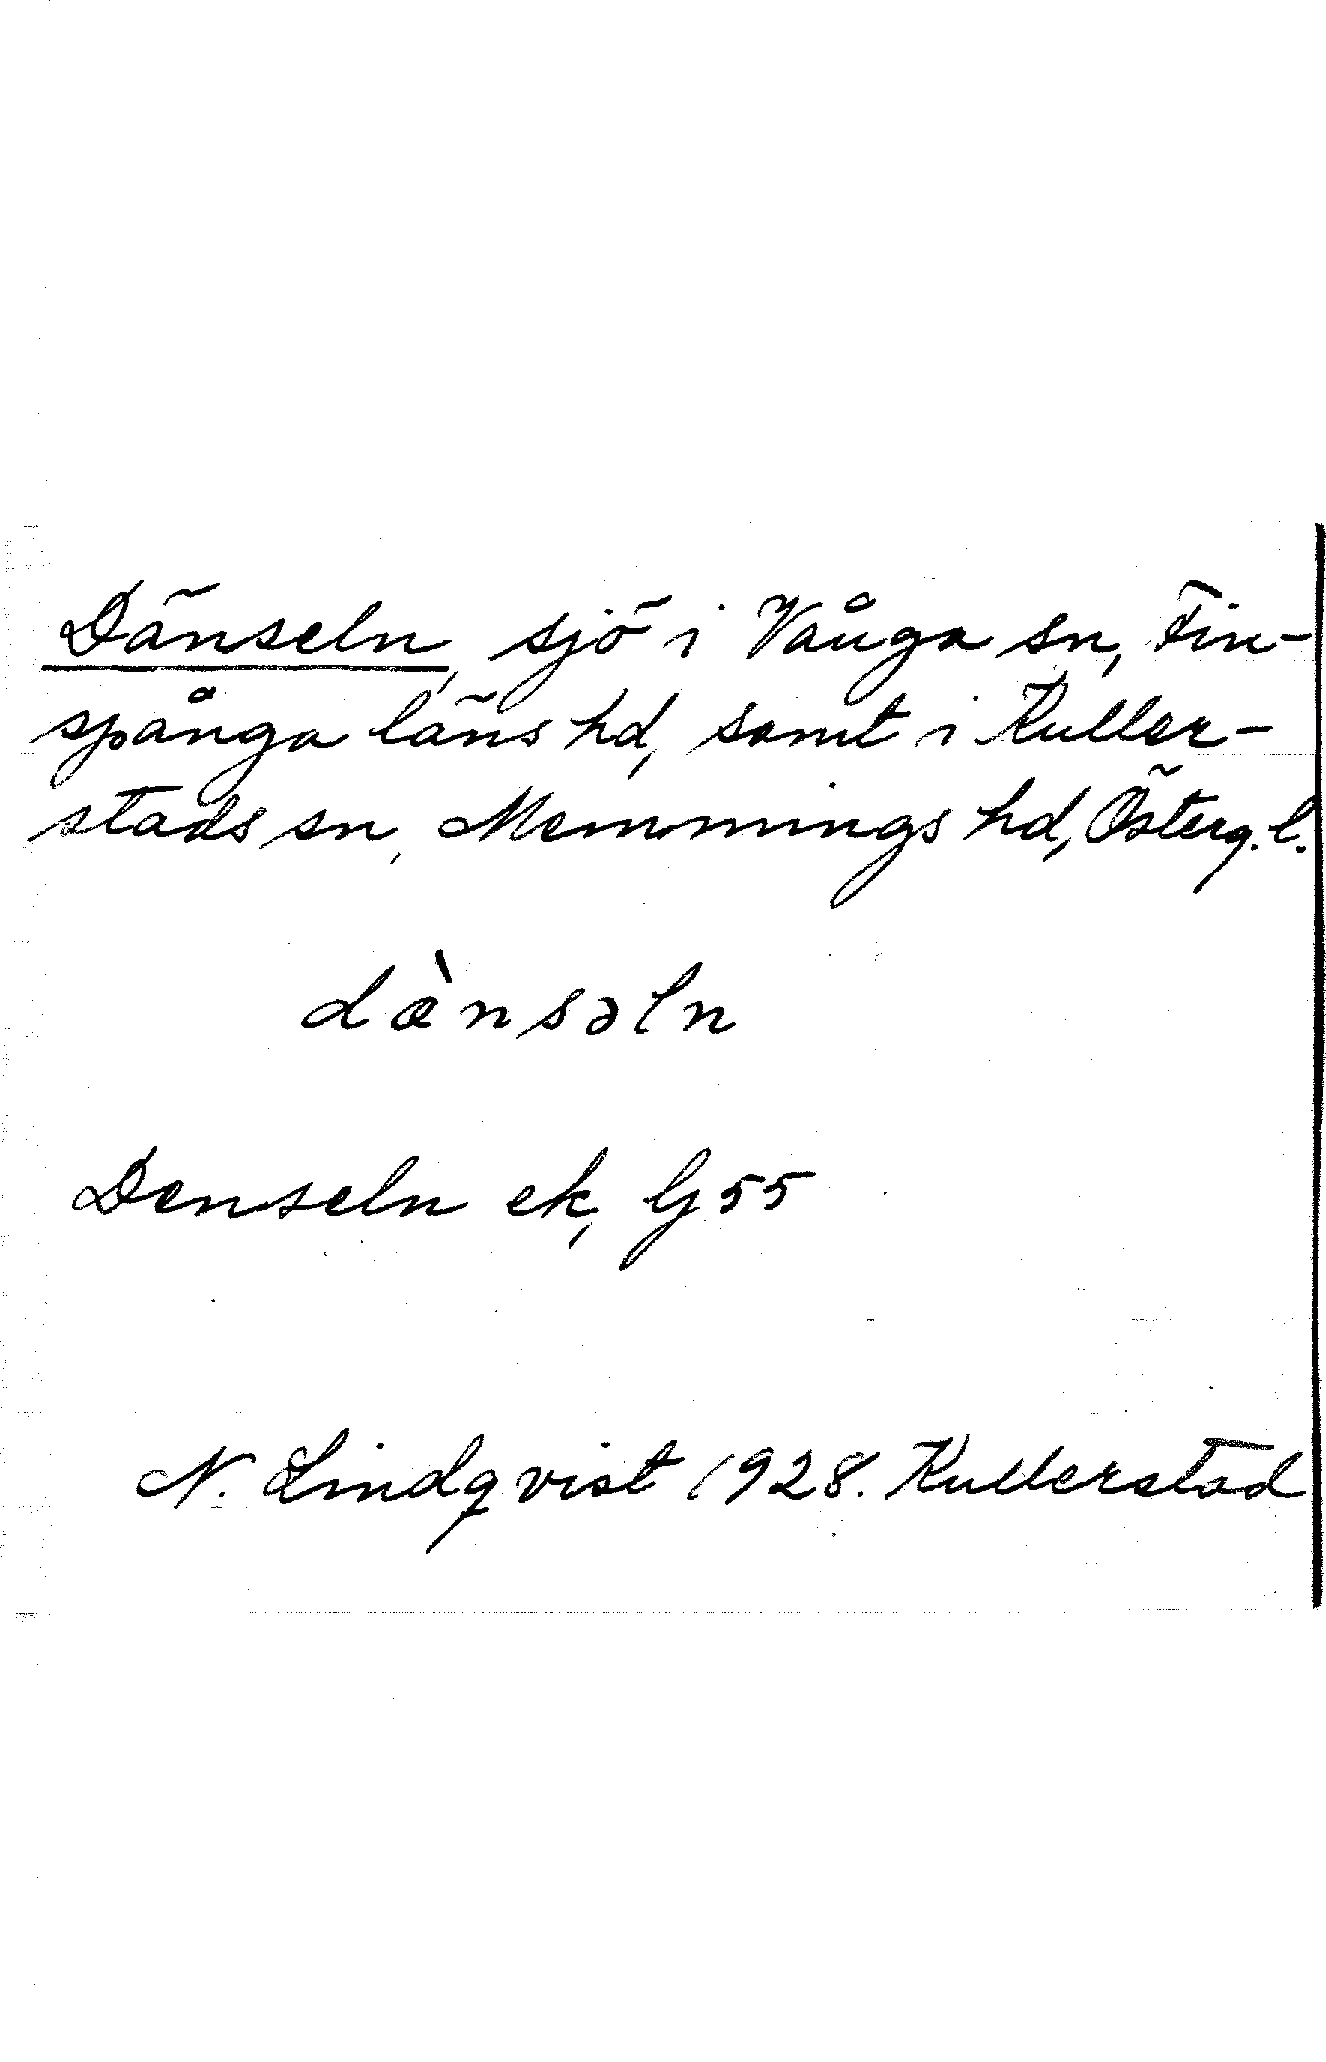 Dänseln, sjö i Vånga sn, Fin-
spånga läns hd, samt i Kuller-
stads sn, Memmings hd, Österg. l.
dæ̀nsəln
Denseln ek, G 55
N. Lindqvist 1928. Kullerstad